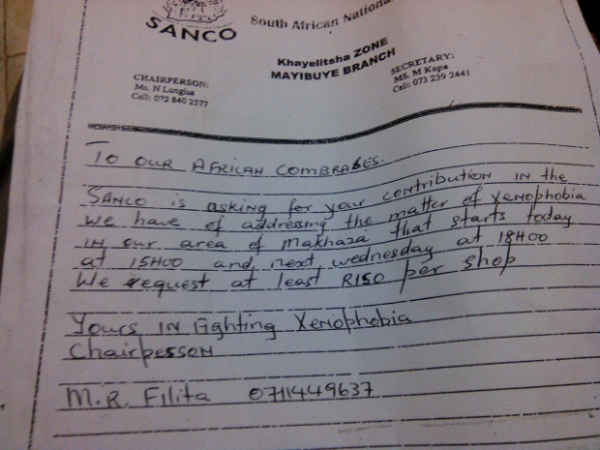 SANCO
South African National
Khayelitsha ZONE
MAYIBUYE BRANCH
CHAIRPERSON:
Ms. N Langisa
Cell: 072 840 2577
SECRETARY:
MS. M Kopa
Cell: 073 239 2441
TO OUR AFRICAN COMBRADES.
SANCO is asking for your contribution in the
We have of addressing the matter of Xenophobia
in our area of Makhaza that starts today
at 15H00 and next wednesday at 18H00
We request at least R150 per shop
Yours in Fighting Xenophobia
Chairpesson
M.R. Filita 0711449637